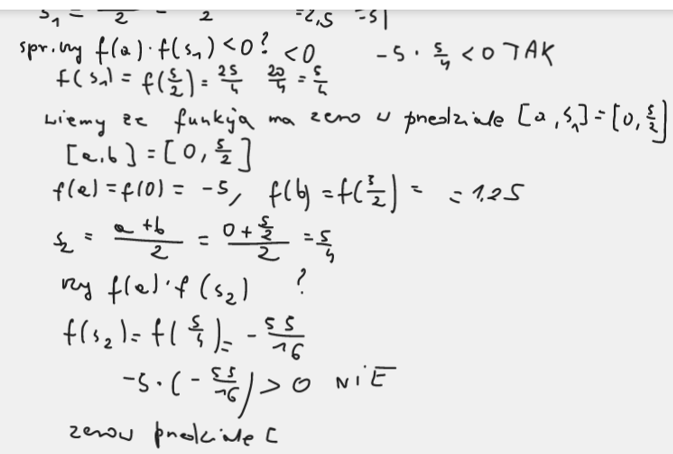 s₁ = ‾2 2 =2,5 =5|
spr. czy f(a)·f(s₁)<0? <0 -5·5/4 <0 TAK
f(s₁)=f(5/2)=25/4 20/4=5/4
wiemy że funkcja ma zero w przedziale [a,s₁]=[0,5/2]
[a,b]=[0,5/2]
f(a)=f(0)=-5, f(b)=f(5/2)= =1,25
s₂ = a+b/2 = 0+5/2/2 =5/4
czy f(a)·f(s₂) ?
f(s₂)=f(5/4)=-55/16
-5·(-55/16)>0 NiE
zero w przedziale [